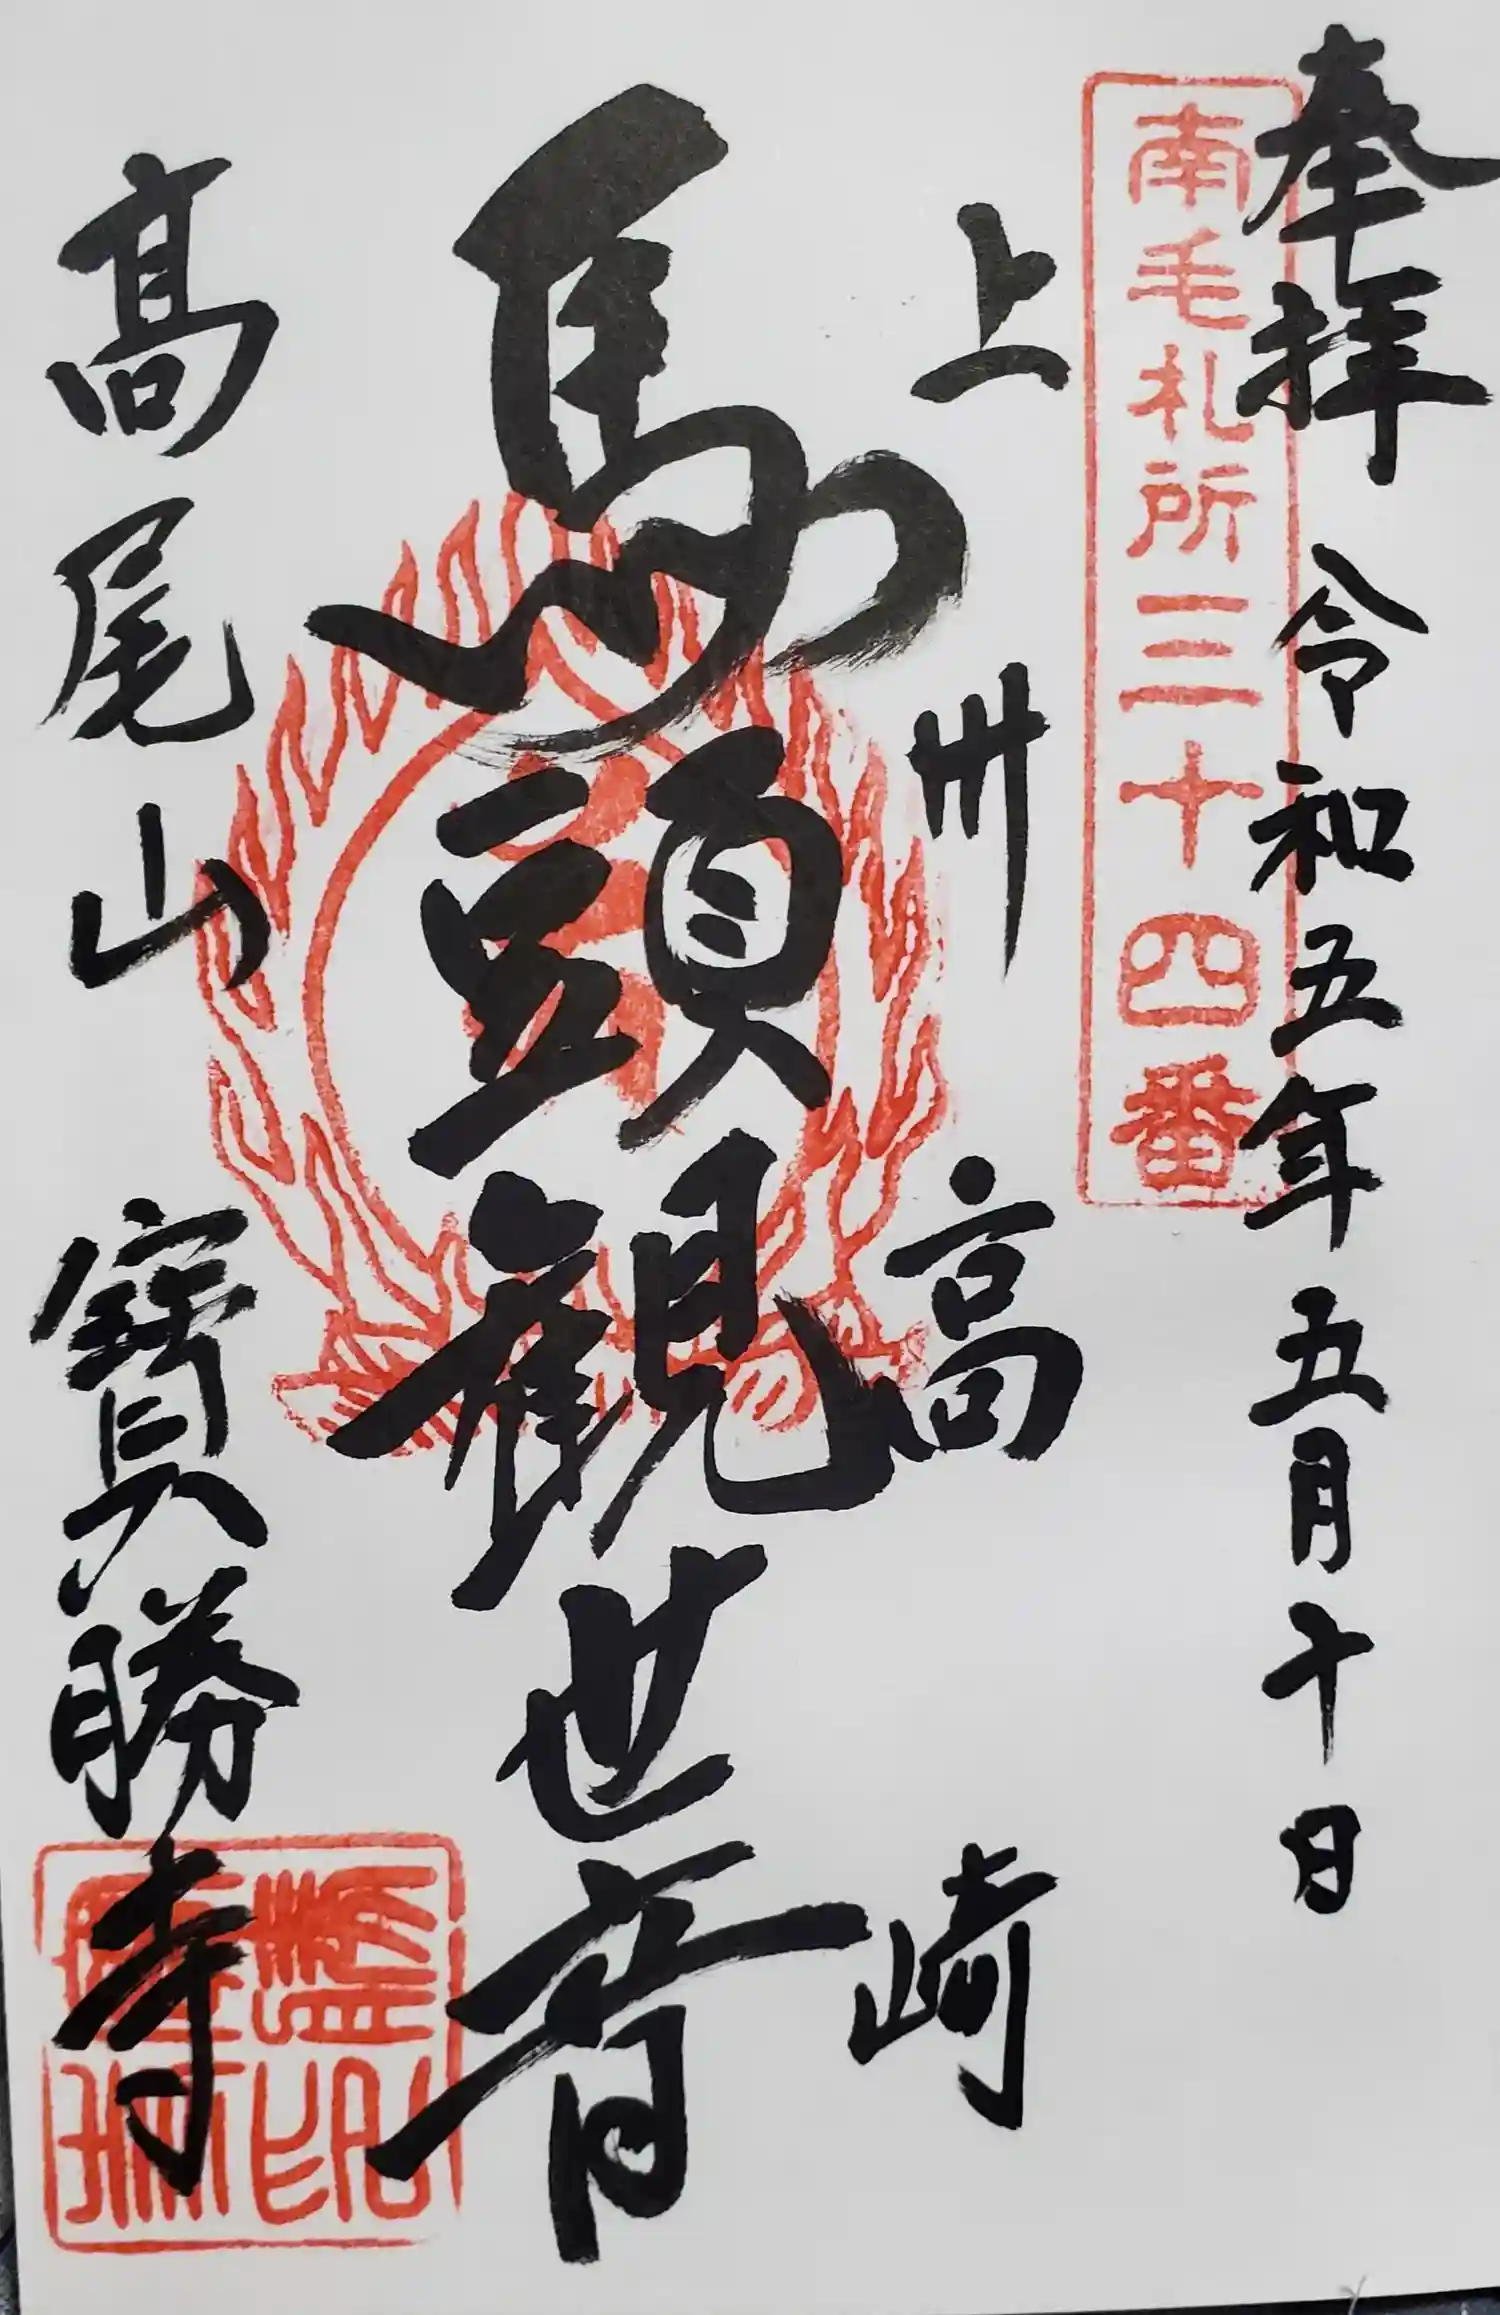 奉拝 令和五年五月十日
南毛札所三十四番
上州高崎
馬頭観世音
高尾山寶勝寺